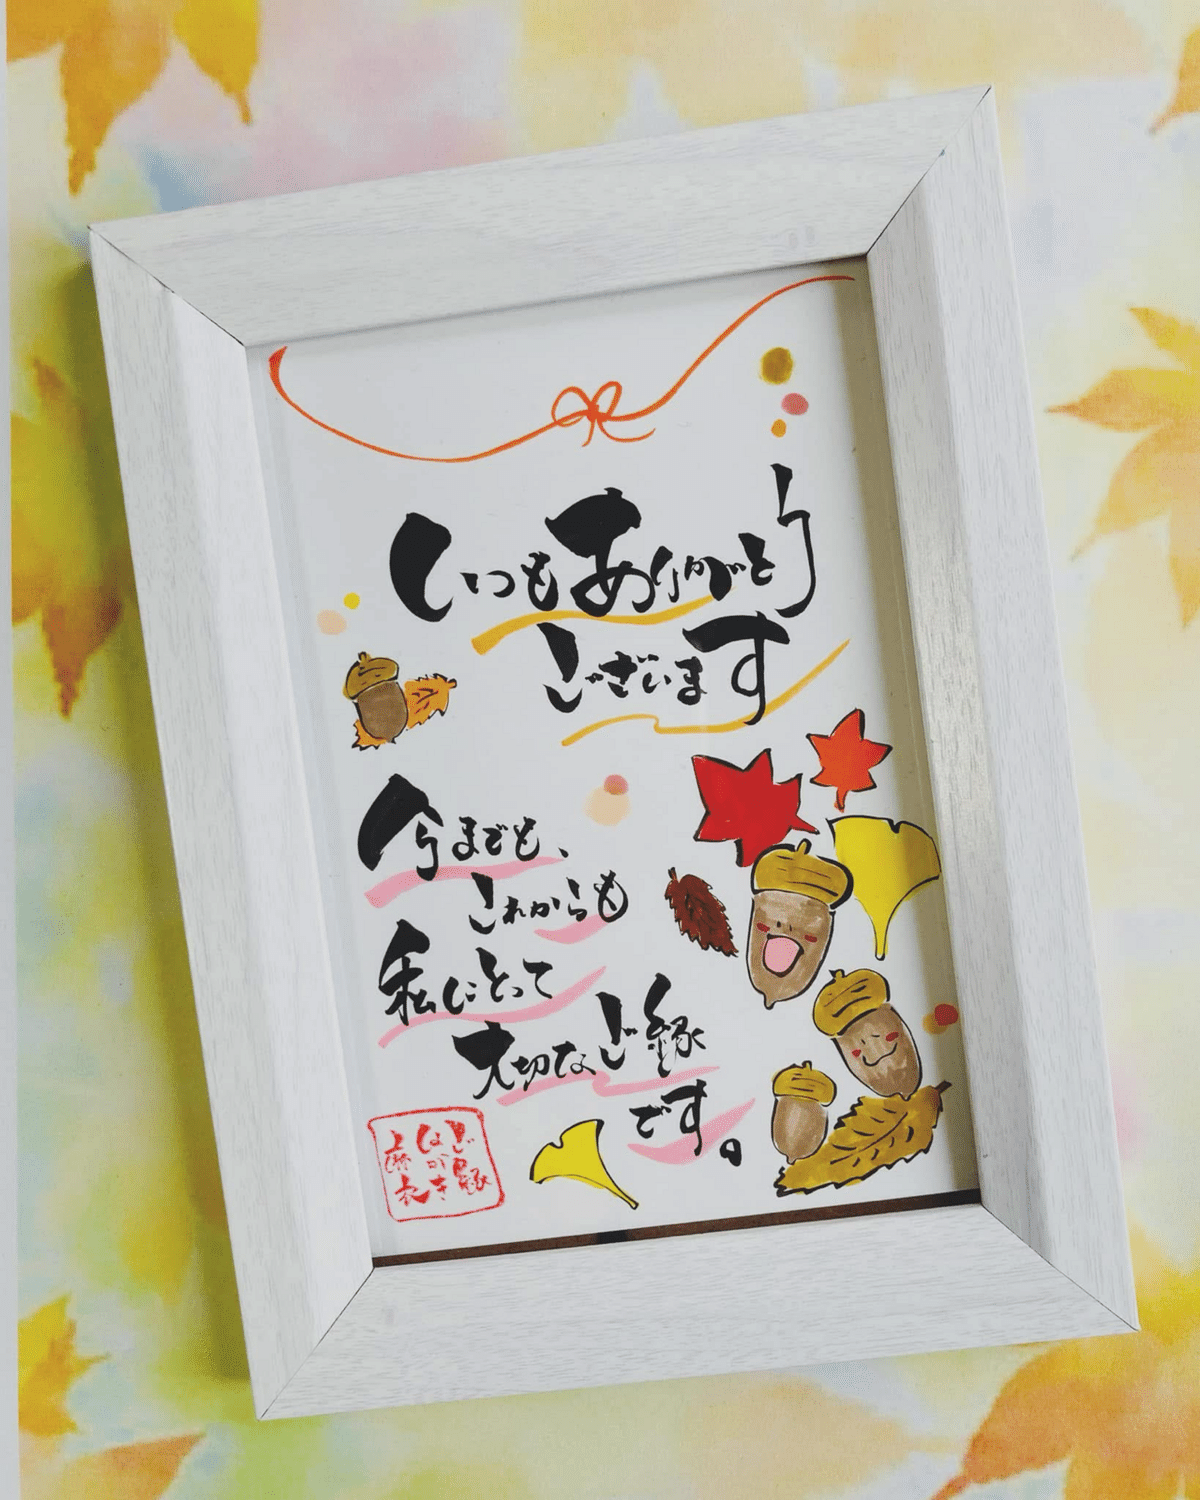 いつもありがとう
ございます
今までも、
これからも
私にとって
大切なご縁
です。
ご縁
はがき
麻衣